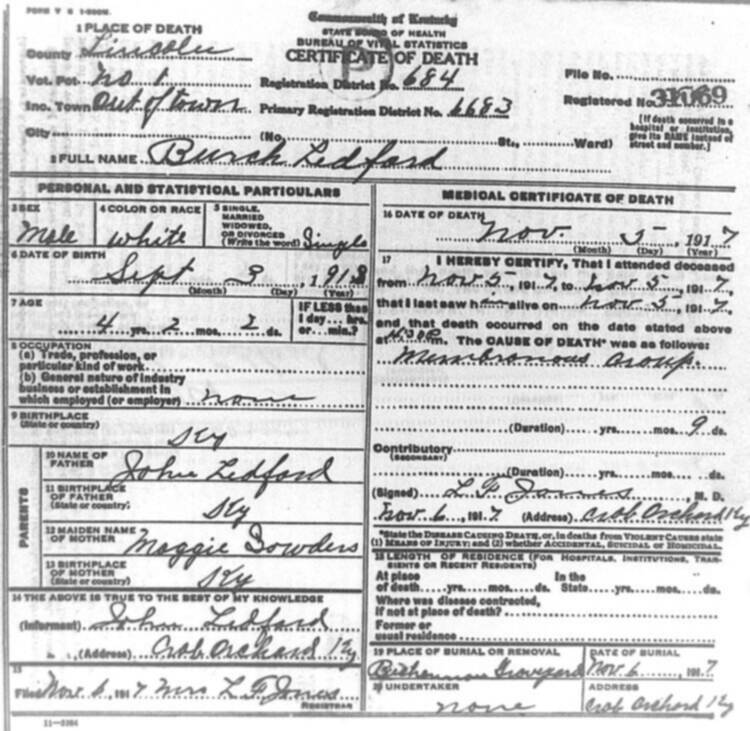 FORM V S 1-200M.
Commonwealth of Kentucky
STATE BOARD OF HEALTH
BUREAU OF VITAL STATISTICS
CERTIFICATE OF DEATH
1 PLACE OF DEATH
County Lincoln
Vot. Pct No 1
Registration District No. 684
File No.
Inc. Town Out of town
Primary Registration District No. 6683
Registered No. 31069
City (No. St., Ward)
[If death occurred in a hospital or institution, give its NAME instead of street and number.]
2 FULL NAME Burch Ledford
PERSONAL AND STATISTICAL PARTICULARS
3 SEX Male
4 COLOR OR RACE white
5 SINGLE, MARRIED WIDOWED, OR DIVORCED (Write the word) Single
6 DATE OF BIRTH
Sept 3, 1913
(Month) (Day) (Year)
7 AGE
4 yrs. 2 mos. 2 ds.
IF LESS than 1 day... hrs. or... min.?
8 OCCUPATION
(a) Trade, profession, or particular kind of work
(b) General nature of industry business or establishment in which employed (or employer) none
9 BIRTHPLACE
(State or country) Ky
PARENTS
10 NAME OF FATHER John Ledford
11 BIRTHPLACE OF FATHER (State or country) Ky
12 MAIDEN NAME OF MOTHER Maggie Sowders
13 BIRTHPLACE OF MOTHER (State or country) Ky
14 THE ABOVE IS TRUE TO THE BEST OF MY KNOWLEDGE
(Informant) John Ledford
(Address) Crab Orchard Ky
15
Filed Nov 6, 1917 Mrs L F Jones
REGISTRAR
11-3184
MEDICAL CERTIFICATE OF DEATH
16 DATE OF DEATH
Nov 5, 1917
(Month) (Day) (Year)
17 I HEREBY CERTIFY, That I attended deceased
from Nov 5, 1917, to Nov 5, 1917,
that I last saw h alive on Nov 5, 1917,
and that death occurred on the date stated above
at m. The CAUSE OF DEATH* was as follows:
Membranous Croup.
(Duration) yrs. mos. 9 ds.
Contributory
(SECONDARY)
(Duration) yrs. mos. ds.
(Signed) L F Jones M. D.
Nov 6, 1917 (Address) Crab Orchard Ky
*State the DISEASE CAUSING DEATH, or, in deaths from VIOLENT CAUSES state
(1) MEANS OF INJURY; and (2) whether ACCIDENTAL, SUICIDAL OR HOMICIDAL.
18 LENGTH OF RESIDENCE (FOR HOSPITALS, INSTITUTIONS, TRANSIENTS OR RECENT RESIDENTS)
At place of death yrs. mos. ds. In the State yrs. mos. ds.
Where was disease contracted,
If not at place of death?
Former or
usual residence
19 PLACE OF BURIAL OR REMOVAL
Graveyard
DATE OF BURIAL
Nov 6, 1917
20 UNDERTAKER
none
ADDRESS
Crab Orchard Ky